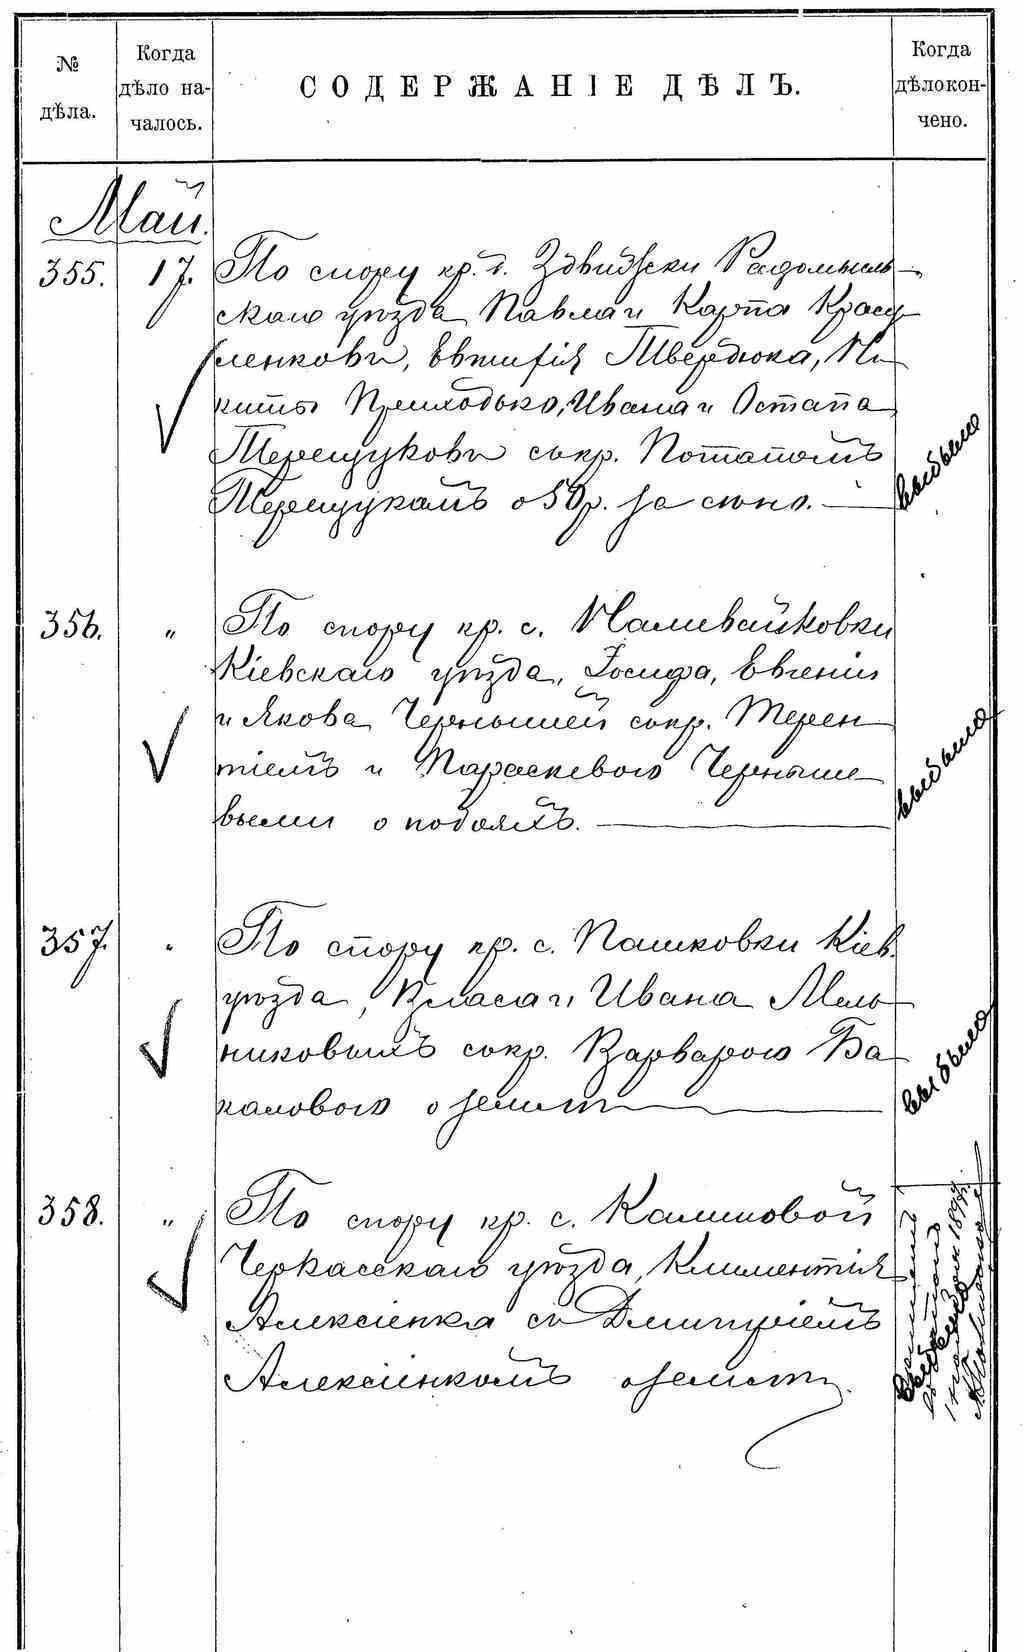 № дѣла.
Когда дѣло на-
чалось.
СОДЕРЖАНІЕ ДѢЛЪ.
Когда дѣло кон-
чено.
Май.
355. 17. По спору кр. д. Здвижски Радомысль-
скаго уѣзда Павла и Карпа Красу
ленковъ, Евтифія Твердюка, Ни
киты Приходько, Ивана и Остапа
Терещуковъ съ кр. Потапомъ
Терещукомъ о 50 р. за сѣно.
выбыло
356. " По спору кр. с. Наливайковки
Кіевскаго уѣзда, Іосифа, Евгенія
и Якова Чернышей съ кр. Терен
тіемъ и Параскевою Черныше
выми о побояхъ.
выбыло
357. " По спору кр. с. Пашковки Кіев.
уѣзда, Власа и Ивана Мель
никовыхъ съ кр. Варварою Ба
каловою о земли
выбыло
358. " По спору кр. с. Калиновой
Черкасскаго уѣзда, Климентія
Алексіенка съ Дмитріемъ
Алексіенкомъ о земли.
выбыло